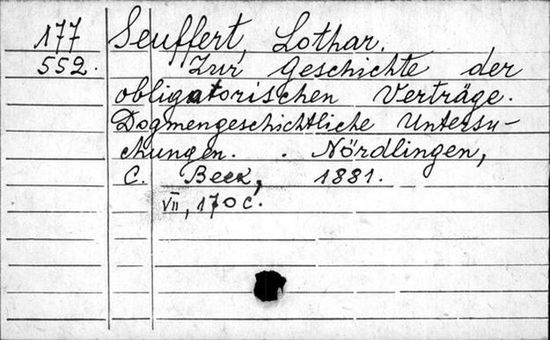 177 Seuffert, Lothar.
552. Zur Geschichte der
obligatorischen Verträge.
Dogmengeschichtliche Untersu-
chungen. . Nördlingen,
C. Beck, 1881.
VII, 170 c.